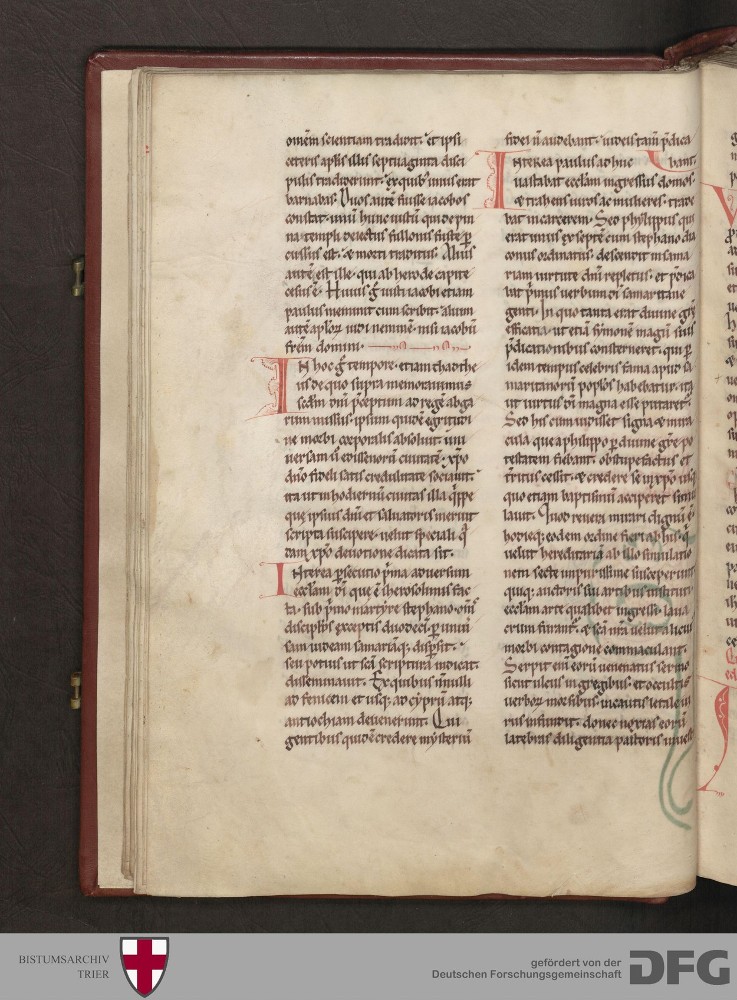 omnē scientiam tradidit. et ipsi
ceteris aplis illis septuaginta disci
pulis tradiderunt. ex quib; unus erat
barnabas. Duos autē fuisse iacobos
constat. unū hunc iustū qui de pin
na templi deiectus fullonis fuste ꝑ
cussus est. & morti traditus. Alius
autē est ille. qui ab herode capite
cesus ē. Huius g̃ iusti iacobi etiam
paulus meminit cum scribit. alium
autē aploꝝ uidi neminē. nisi iacobū
frēm domini.
IN hoc g̃ tempore. etiam thadthe
us de quo supra memorauimus
scdm dnī p̄ceptum ad regē abga
rum missus. ipsum quidē egritudi
ne morbi corporalis absoluit. uni
uersam u edissenorū ciuitatē. xp̄o
dn̄o fideli satis credulitate sociauit.
ita ut in hodiernū ciuitas illa q̄ppe
que ipsius dnī et saluatoris meruit
scripta suscipere. uelut speciali q̄
dam xp̄o deuotione dicata sit.
INterea ꝑsecutio p̄ma aduersum
ecclām dī que ē iherosolimis fac
ta. sub p̄mo martyre stephano. om̄s
disciplos exceptis duodecī. ꝑ uniū
sam iudeam samariāq; disꝑsit.
seu potius ut scā scriptura indicat.
disseminauit. Ex quibus nnulli
ad fenicem et usq; ad cyprū atq;
antiochiam deuenerunt. Qui
gentibus quidē credere mysteriū
fidei n̄ audebant. iudeis tam̄ p̄dica
INterea paulus adhuc bant.
uastabat ecclām ingressus domos.
& trahens uiros ac mulieres. trade
bat in carcerem. Sed phylippus qui
erat unus ex septē cum stephano dia
conus ordinatus. descendit in sama
riam uirtute dnī repletus. et p̄dica
bat p̄mus uerbum dī samaritane
genti. In quo tanta erat diuine grē
efficatia. ut etiā symonē magū suis
p̄dicationibus consterneret. qui ꝑ
idem tempus celebris fama apud sa
maritanorū poplos habebatur. ita
ut uirtus dī magna esse putaret.
Sed his cum uidisset signa & mira
cula que a philippo ꝑ diuine grē po
testatem fiebant. obstupefactus et
t̄ritus cessit. & credere se in xp̄o usq
quo etiam baptismū acciperet simu
lauit. Quod reuera mirari dignū ē
hodieq; eodem ordine fieri ab his. q̄
uelut hereditaria ab illo simulatio
nem secte impurissime susceperunt
quiq; auctoris sui artibus instituti
ecclām arte qualibet ingressi. laua
crum furant̄. & scā nrā uelut alicui
morbi contagione commaculant.
Serpit enī eorū uenenatus sermo
sicut ulcus in gregibus. et occultis
uerboꝝ morsibus. incautis letale ui
rus infundit. donec noxias eorū
latebras diligentia pastoris inueni
BISTUMSARCHIV
TRIER
gefördert von der
Deutschen Forschungsgemeinschaft
DFG